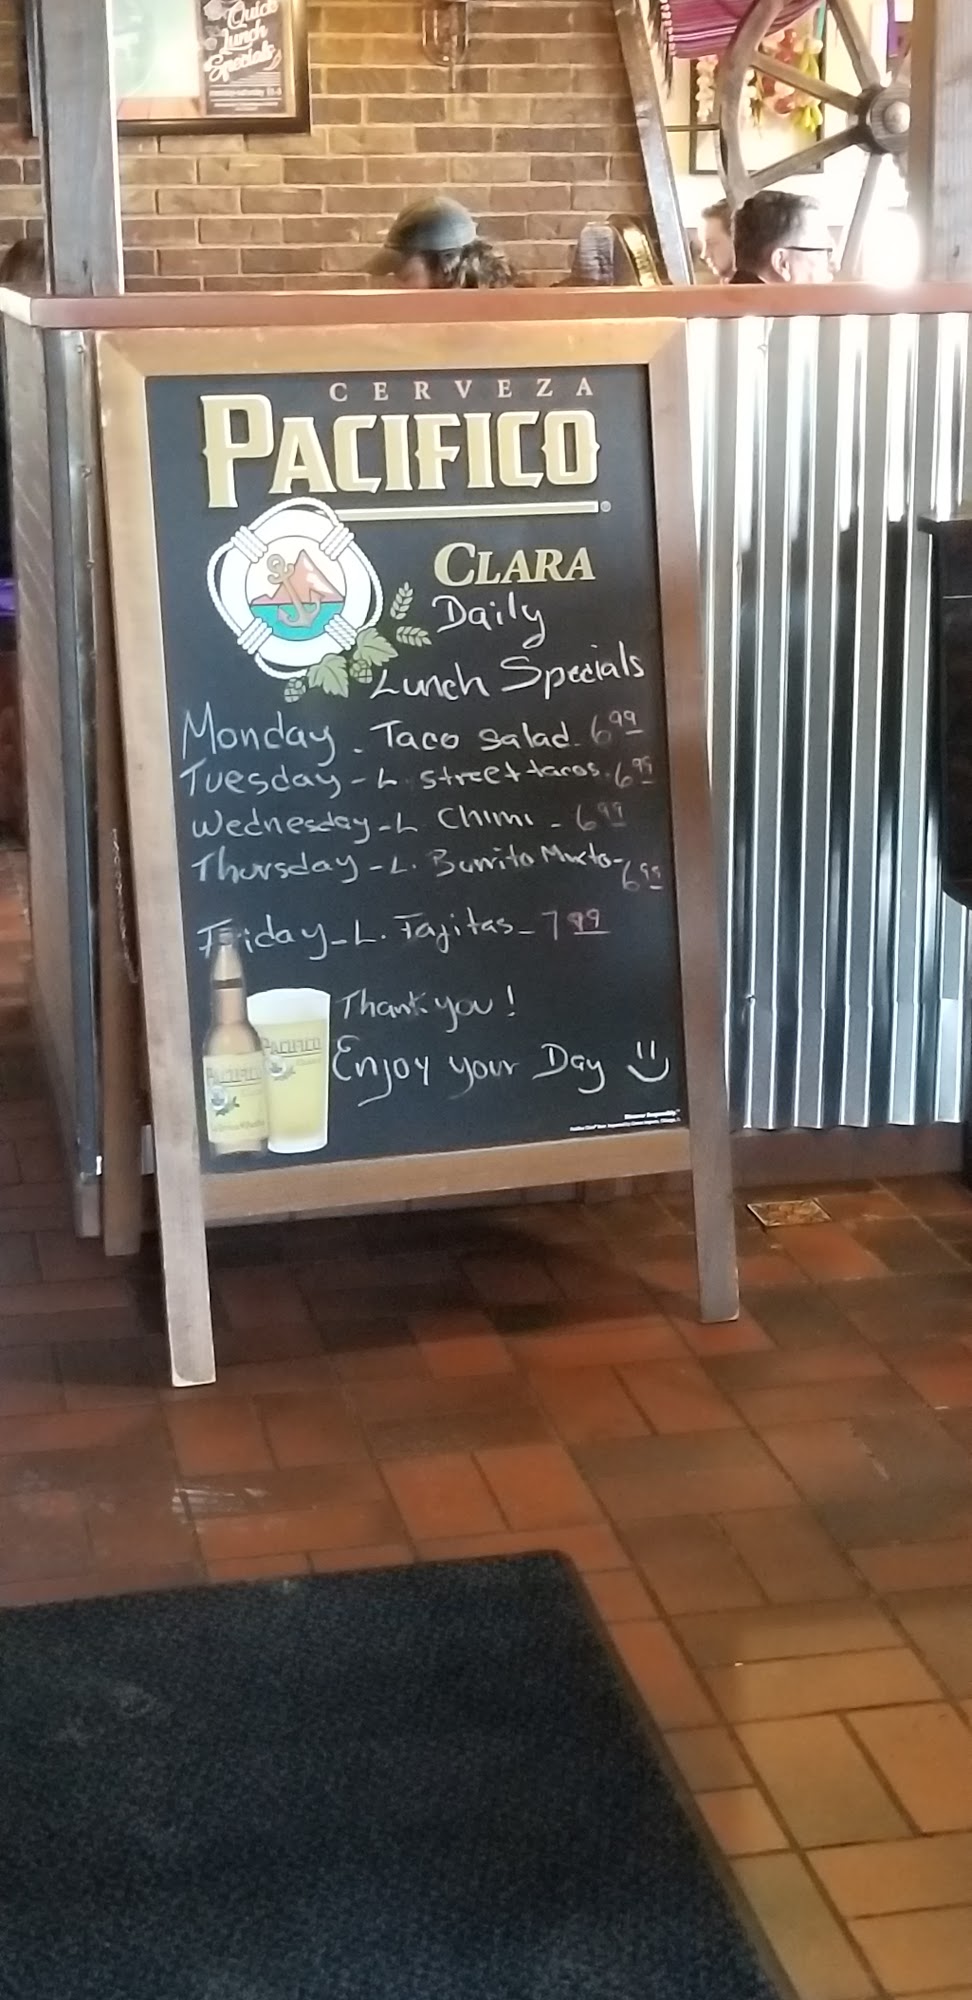 Quick
Lunch
Specials
CERVEZA
PACIFICO
CLARA
Daily
Lunch Specials
Monday - Taco Salad - 6.99
Tuesday - L. Street tacos - 6.99
Wednesday - L. Chimi - 6.99
Thursday - L. Burrito Mixto - 6.99
Friday - L. Fajitas - 7.99
Thank you!
Enjoy your Day
PACIFICO
PACIFICO